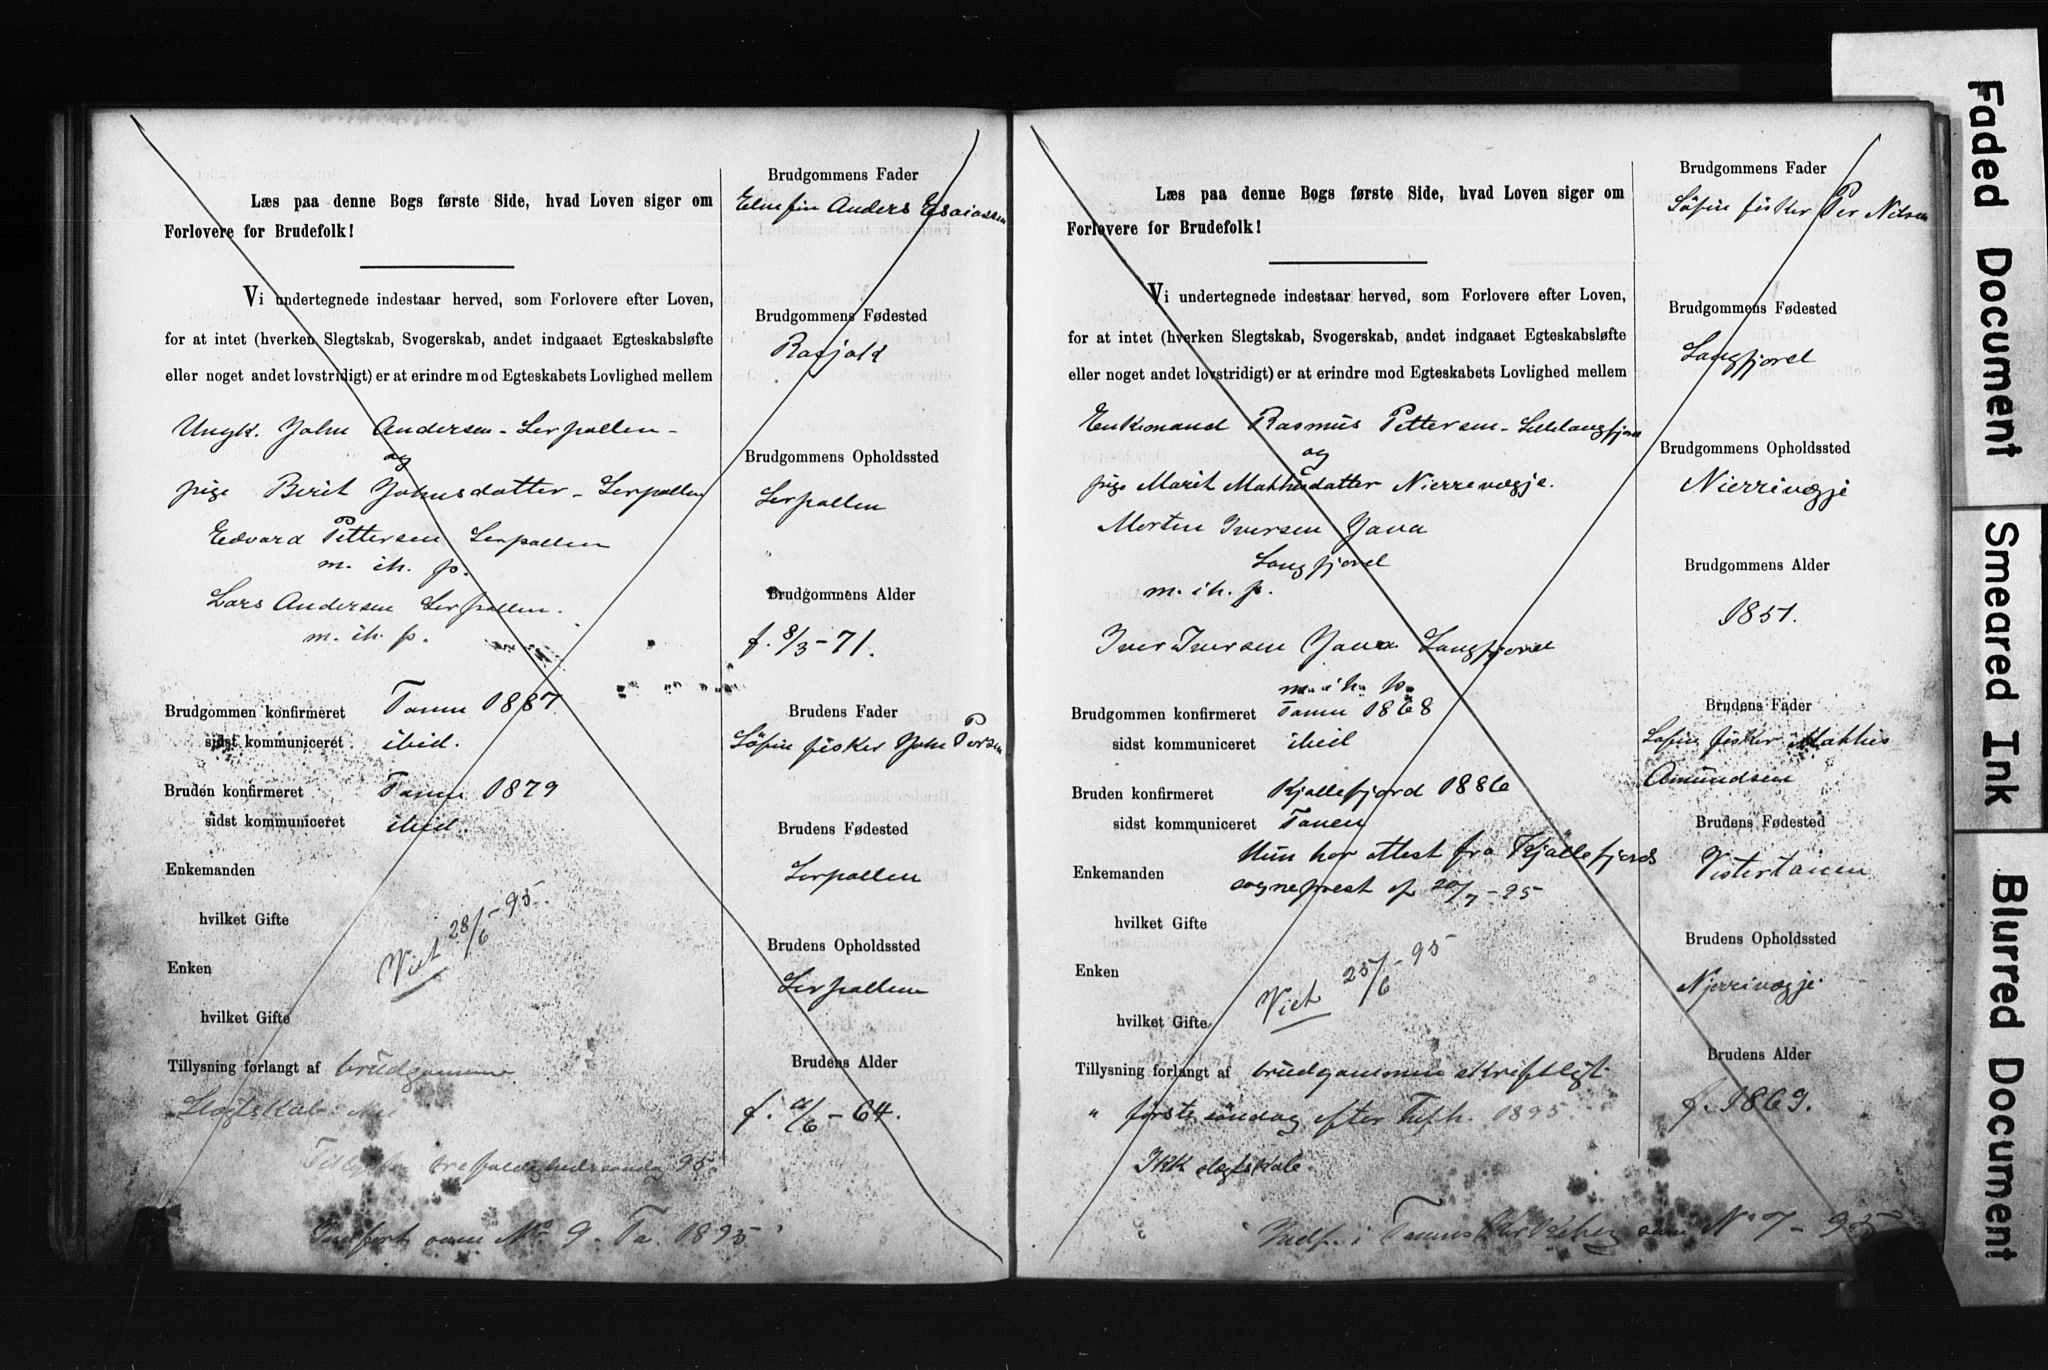 Læs paa denne Bogs første Side, hvad Loven siger om
Forlovere for Brudefolk!
Vi undertegnede indestaar herved, som Forlovere efter Loven,
for at intet (hverken Slegtskab, Svogerskab, andet indgaaet Egteskabsløfte
eller noget andet lovstridigt) er at erindre mod Egteskabets Lovlighed mellem
Ungk. John Andersen - Lerpollen -
og
pige Berit Johnsdatter - Lerpollen
Edvard Pettersen Lerpollen
m. ih. p.
Lars Andersen Lerpollen.
m. ih. p.
Brudgommen konfirmeret Tanen 1887.
sidst kommuniceret ibid.
Bruden konfirmeret Tanen 1879
sidst kommuniceret ibid.
Enkemanden
hvilket Gifte
Enken
hvilket Gifte
Viet 28/6 - 95.
Tillysning forlangt af brudgommen.
Slegtskab: Nei
trefoldighedssøndag 95.
Indført som No 9. Ta. 1895
Brudgommens Fader
Elvefin Anders Esaiassen
Brudgommens Fødested
Brudgommens Opholdssted
Lerpollen
Brudgommens Alder
f. 8/3 - 71.
Brudens Fader
Søfin fisker John Persen
Brudens Fødested
Lerpollen
Brudens Opholdssted
Lerpollen
Brudens Alder
- 64.
Læs paa denne Bogs første Side, hvad Loven siger om
Forlovere for Brudefolk!
Vi undertegnede indestaar herved, som Forlovere efter Loven,
for at intet (hverken Slegtskab, Svogerskab, andet indgaaet Egteskabsløfte
eller noget andet lovstridigt) er at erindre mod Egteskabets Lovlighed mellem
Enkemand Rasmus Pettersen - Lillelangfjord
og
pige Marit Mathisdatter Nierrevægje.
Morten Iversen Java
Langfjord
m. ih. p.
Iver Iversen Java Langfjord
m. ih. p.
Brudgommen konfirmeret Tanen 1868
sidst kommuniceret ibid
Bruden konfirmeret Kjøllefjord 1886
sidst kommuniceret Tanen
Hun har attest fra Kjøllefjords
sogneprest af 20/7 - 95
Enkemanden
hvilket Gifte
Enken
hvilket Gifte
Viet 25/6 - 95
Tillysning forlangt af brudgommen skriftligt
" første søndag efter Trefh. 1895.
Ikk slegtskab.
Indf. i Tanens Kirkebog som N. 7 - 95
Brudgommens Fader
Søfin fisker Per Nilsen
Brudgommens Fødested
Langfjord
Brudgommens Opholdssted
Nierrivægje
Brudgommens Alder
1851.
Brudens Fader
Søfin fisker Mathis
Amundsen
Brudens Fødested
Vestertanen
Brudens Opholdssted
Njerrivægje
Brudens Alder
f. 1869.
Faded Document
Smeared Ink
Blurred Document